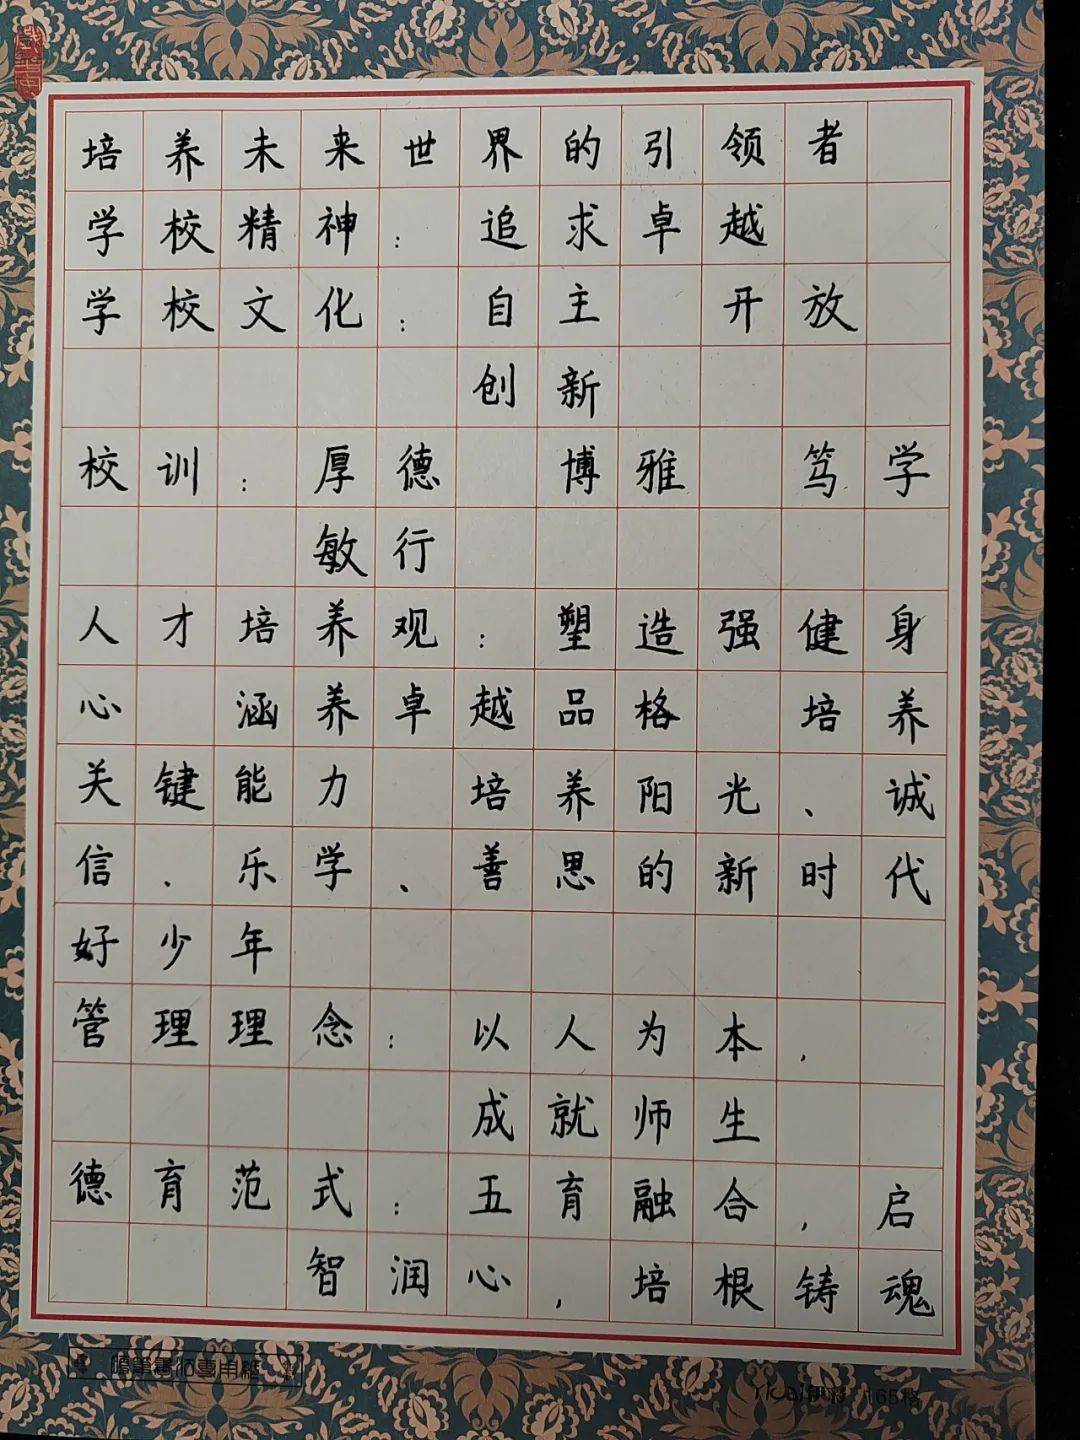 培养未来世界的引领者
学校精神：追求卓越
学校文化：自主 开放
创新
校训：厚德 博雅 笃学
敏行
人才培养观：塑造强健身
心 涵养卓越品格 培养
关键能力 培养阳光、诚
信、乐学、善思的新时代
好少年
管理理念：以人为本，
成就师生
德育范式：五育融合，启
智润心，培根铸魂
165格